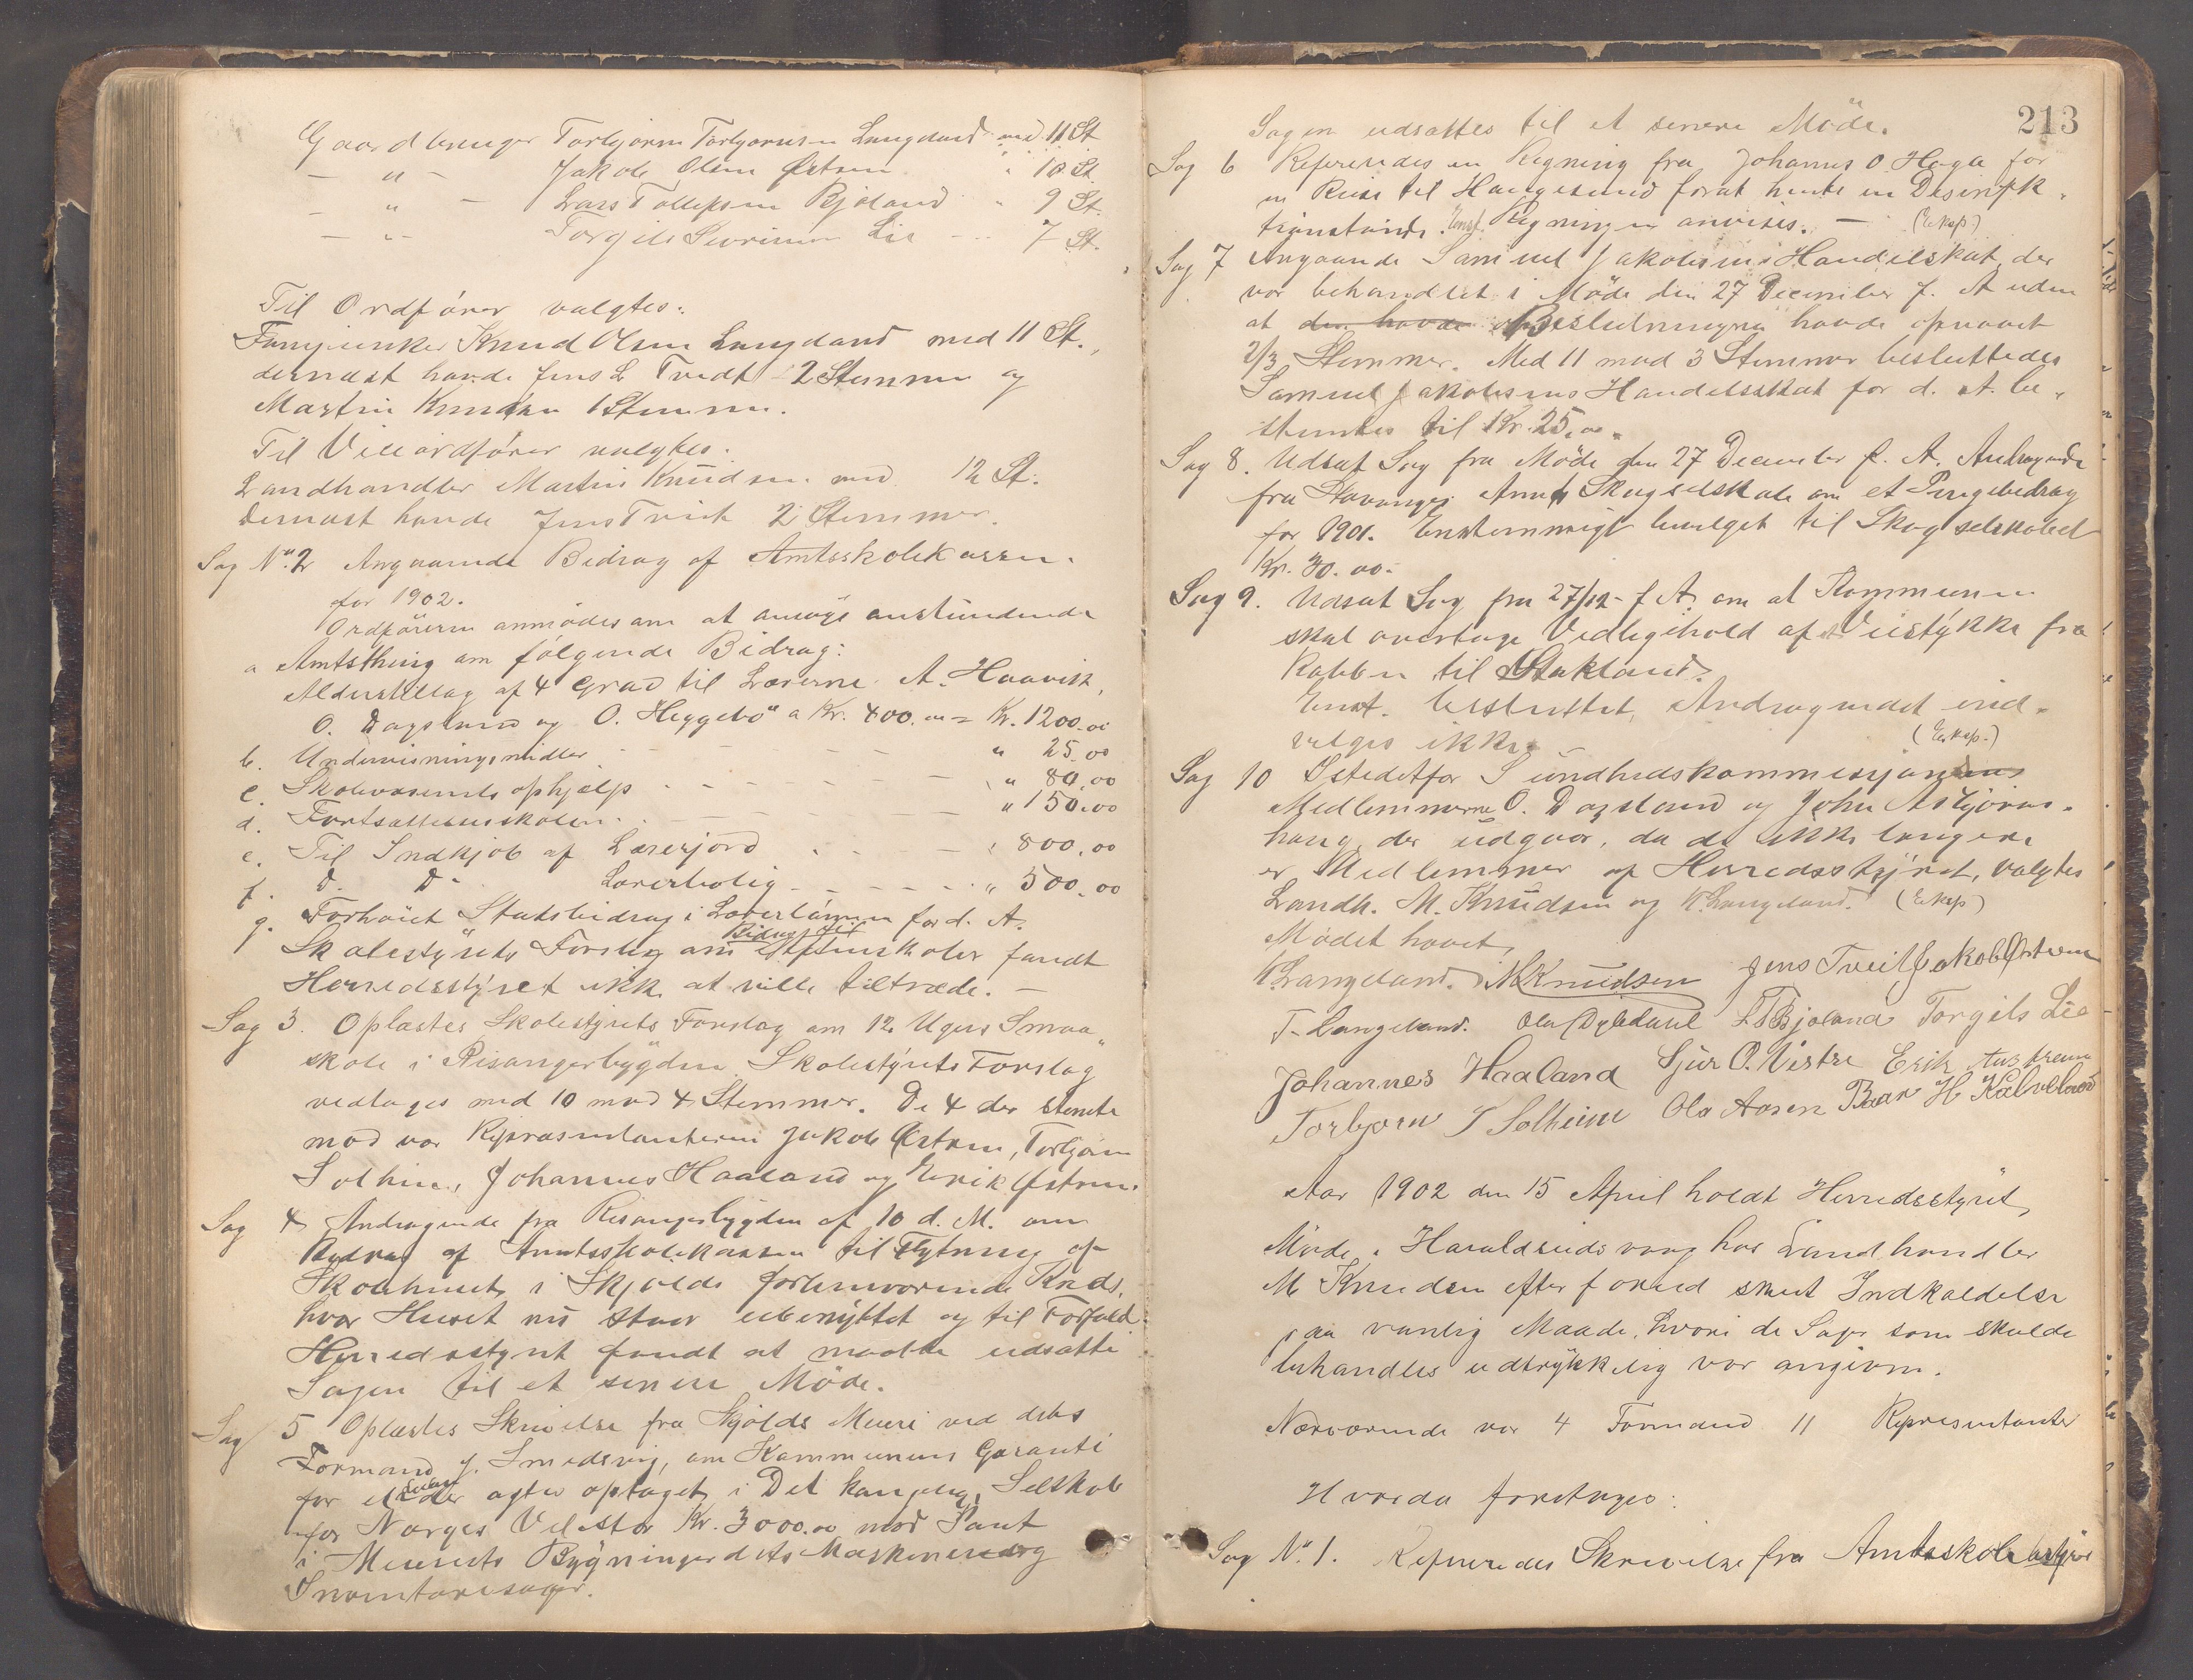 Gaardbruger Torbjørn Torbjørnsen Langeland med 11 St.
— " — Jakob Olsen Østrem " 10 St.
— " — Lars Tollefsen Bjøland " 9 St.
— " — Torgils Lie 7 St.
Til Ordfører valgtes:
Knud Olsen Langeland med 11 St.,
dernæst havde Jens L Tvedt 2 Stemmer og
Martin Knudsen 1 Stemme.
Til Viceordfører valgtes:
Landhandler Martin Knudsen med 12 St.
Dernæst havde Jens Tveit 2 Stemmer.
Sag No. 2 Angaaende Bidrag af Amtsskolekassen
for 1902.
Ordføreren anmodes om at ansøge anstundende
a Amtsthing om følgende Bidrag:
Alderstillæg af 4 Grad til Lærerne A. Haavik,
O. Dagsland og O. Heggebö a Kr. 400.00 = Kr. 1200.00
b. Undervisningsmidler - - - - " 25.00
c. Skolevæsenets ophjælp - - - - " 80.00
d. Fortsættelsesskolen - - - - " 150.00
e. Til Indkjøb af Lærerjord - - - " 800.00
f. D. D. Lærerbolig - - - - " 500.00
g. Forhöiet Statsbidrag i Lærerlönnen for d. A.
Skolestyrets Forslag om Bidrag til Aftenskoler fandt
Herredsstyret ikke at ville tiltræde. —
Sag 3. Oplæstes Skolestyrets Forslag om 12 Ugers Smaa„
skole i Risangerbygden. Skolestyrets Forslag
vedtages med 10 mod 4 Stemmer. De 4 der stemte
mod var Repræsentanterne Jakob Østrem, Torbjørn
Solheim, Johannes Haaland og Erik Østrem.
Sag 4 Andragende fra Risangerbygden af 10 d. M. om
Bidrag af Amtsskolekassen til Flytning af
Skolehuset i Skjolds forhenværende Kreds,
hvor Huset nu staar ubenyttet og til Forfald.
Herredsstyret fandt at maatte udsætte
Sagen til et senere Möde.
Sag 5 Oplæstes Skrivelse fra Skjolds Meieri ved dets
Formand J. Smedsvig, om Kommunens Garanti
for et Laan der agtes optaget i Det kongelig Selskab
for Norges Vel stor Kr. 3000.00 mod Pant
i Meieriets Bygninger dets Maskiner og
Inventariesager.
213
Sagen udsættes til et senere Möde.
Sag 6 Refereredes en Regning fra Johannes O. Haga for
en Reise til Haugesund forat hente en Desinfek„
tionstönde. Enst. Regningen anvises. — (Exkep)
Sag 7 Angaaende Samuel Jakobsens Handelskat, der
var behandlet i Möde den 27 December f. A uden
at den havde Beslutningen havde opnaaet
2/3 Stemmer. Med 11 mod 3 Stemmer besluttedes
Samuel Jakobsens Handelsskat for d. A. be„
stemtes til Kr. 25.00.
Sag 8. Udsat Sag fra Möde den 27 December f. A. Andragende
fra Stavanger Amts Skogselskab om et Pengebedrag
for 1901. Enstemmigt bevilget til Skogselskabet
Kr. 30.00.
Sag 9. Udsat Sag fra 27/12 f A. om at Kommunen
skal overtage Vedligehold af Veistykke fra
Kobben til Stakland.
Enst. besluttet, Andragendet ind„
vilges ikke. (Exkep.)
Sag 10 Istedetfor Sundhedskommissjonens
Medlemmerne O. Dagsland og John Asbjörns„
haug der udgaar, da de ikke længere
er Medlemmer af Herredsstyret, valgtes
Landh. M. Knudsen og K. Langeland. (Exkep)
Mödet hævet,
K. Langeland. M Knudsen Jens Tveit Jakob Østrem
T. Langeland. Ola LTBjoland Torgils Lie
Johannes Haaland Sjur O. Vestre Erik Austreim
Torbjørn T Solheim Ola Aasen Baar H Kalveland
Aar 1902 den 15 April holdt Herredsstyret
Möde i Haraldseidsvaag hos Landhandler
M Knudsen efter forud skeet Indkaldelse
paa vanlig Maade, hvori de Sager som skulde
behandles udtrykkelig var angiven.
Nærværende var 4 Formænd 11 Repræsentanter
Hvorda foretages:
Sag No. 1. Refereredes Skrivelse fra Amtsskolebestyre